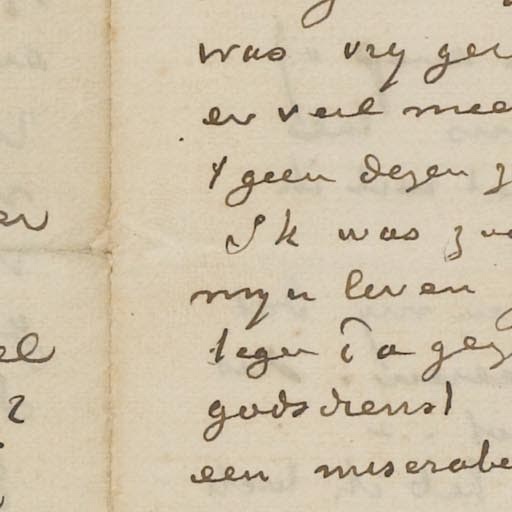 was vry ger
er veel mee
't geen dezen z
Ik was zwa
myn leven
tegen Pa gez
godsdienst
een miserabe
er
el